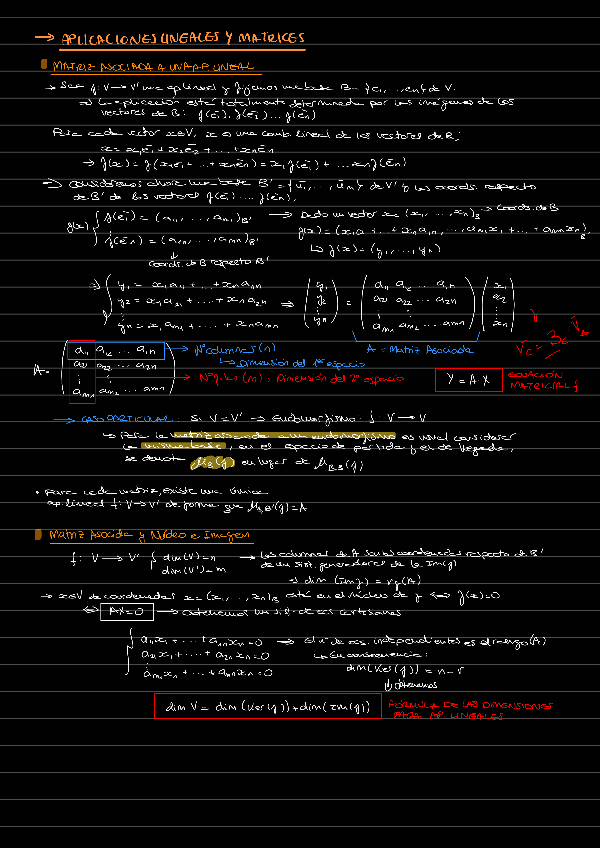 → APLICACIONES LINEALES Y MATRICES
MATRIZ ASOCIADA A UNA AP. LINEAL
→ Sea f: V → V' una aplineal y fijamos una base B = {e̅₁, ..., e̅n} de V.
⇒ La aplicación está totalmente determinada por las imágenes de los
vectores de B: f(e̅₁), f(e̅₂) ... f(e̅n)
Para cada vector x∈V, x es una comb. lineal de los vectores de B:
x = x₁e̅₁ + x₂e̅₂ + ... + xne̅n
→ f(x) = f(x₁e̅₁ + ... + xne̅n) = x₁f(e̅₁) + ... xnf(e̅n)
→ Consideramos ahora una base B' = {u̅₁, ..., u̅m} de V' y las coords. respecto
de B' de los vectores f(e̅₁) ... f(e̅n),
f(x) { f(e̅₁) = (a₁₁, ..., am₁)B' → Dado un vector x = (x₁, ..., xn)B → Coords. de B
f(e̅n) = (a₁n, ..., amn)B' f(x) = (x₁a₁₁ + ... + xna₁n, ..., am₁x₁ + ... + amnxn)B'
↳ f(x) = (y₁, ..., yn)
coords. de B respecto B'
⇒ { y₁ = x₁a₁₁ + ... + xna₁n
y₂ = x₁a₂₁ + ... + xna₂n
yn = x₁am₁ + ... + xnamn
⇒ (y₁ y₂ ⋮ yn) = (a₁₁ a₁₂ ... a₁n a₂₁ a₂₂ ... a₂n ⋮ am₁ am₂ ... amn) (x₁ x₂ ⋮ xn)
A = (a₁₁ a₁₂ ... a₁n
a₂₁ a₂₂ ... a₂n
⋮
am₁ am₂ ... amn)
→ Nº columnas (n)
↳ Dimensión del 1er espacio
→ Nº filas (m): Dimensión del 2º espacio
A = Matriz Asociada
Y = A·X
ECUACIÓN
MATRICIAL f
→ CASO PARTICULAR: Si V = V' → Endomorfismo f: V → V
↳ Para la matriz asociada a un endomorfismo es usual considerar
la misma base, en el espacio de partida y en de llegada,
se denota MB(f) en lugar de MB,B(f)
• Para cada matriz, existe una única
ap. lineal f: V → V' de forma que MB,B'(f) = A
Matriz Asociada y Núcleo e Imagen
f: V → V' { dim(V) = n
dim(V') = m
→ Las columnas de A son las coordenadas respecto de B'
de un sist. generadores de la Im(f)
⇒ dim (Imf) = rg(A)
→ x∈V de coordenadas x = (x₁, ..., xn)B está en el núcleo de f ⟺ f(x) = 0
⟺ AX = 0 → obtenemos un sist. de ecs cartesianas
{ a₁₁x₁ + ... + a₁nxn = 0 → el nº de ecs. independientes es el rango(A)
a₂₁x₁ + ... + a₂nxn = 0 ↳ En consecuencia:
am₁x₁ + ... + amnxn = 0 dim(Ker(f)) = n - r
⇓ obtenemos
dim V = dim (Ker(f)) + dim(Im(f))
FÓRMULA DE LAS DIMENSIONES
PARA AP. LINEALES